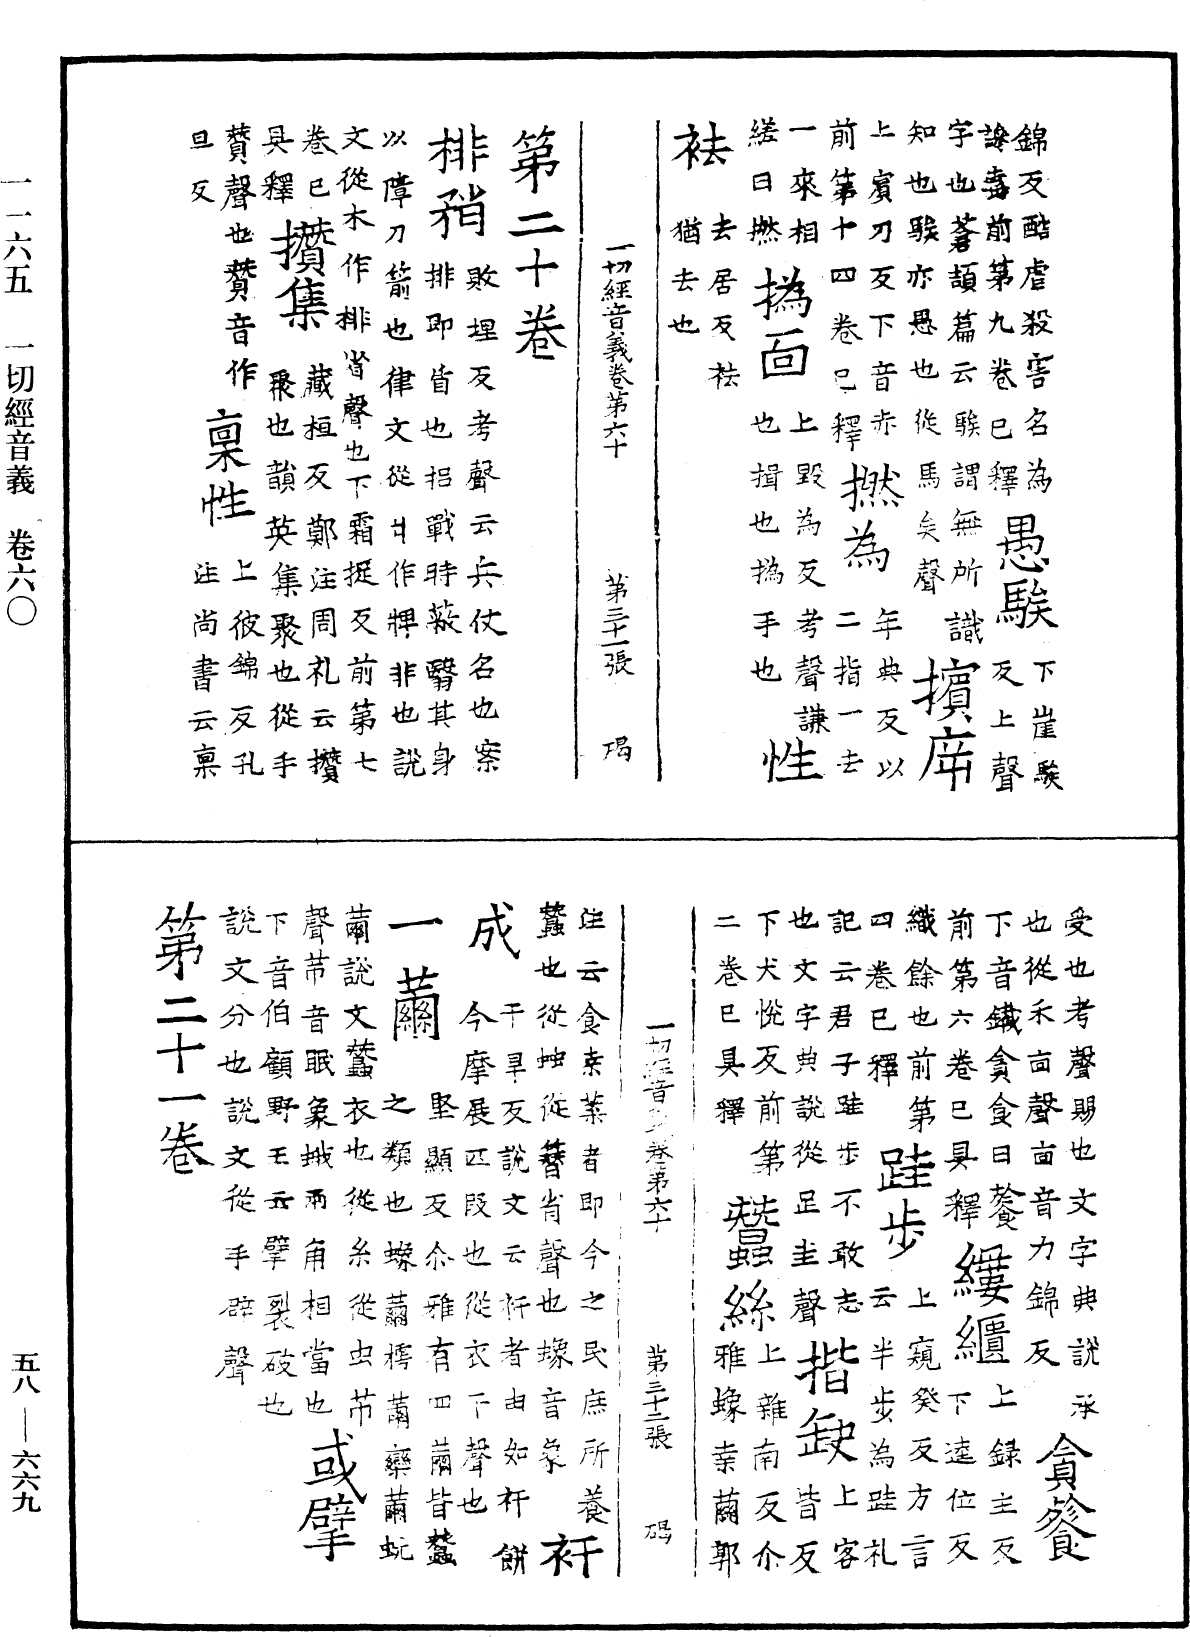 一一六五　一切經音義　卷六〇
錦反酷虐殺害名為
諺毒前第九卷已釋
愚騃
下崖騃
反上聲
字也蒼頡篇云騃謂無所識
知也騃亦愚也從馬矣聲
擯庌
上賓刃反下音赤
前第十四卷已釋
撚為
年典反以
二指一去
一來相
緩曰撚
撝面
上毀為反考聲謙
也揖也撝手也
性
袪
去居反袪
猶去也
一切經音義卷第六十　第三十一張　碣
第二十卷
排矟
敗埋反考聲云兵仗名也案
排即㫄也招戰時蔽翳其身
以障刀箭也律文從爿作牌非也說
文從木作排省聲也下霜捉反前第七
卷已
具釋
攢集
藏桓反鄭注周礼云攢
聚也韻英集聚也從手
贊聲也贊音作
旦反
稟性
上彼錦反孔
注尚書云稟
受也考聲賜也文字典說承
也從禾㐭聲㐭音力錦反
貪餮
下音鐵貪食曰餮
前第六卷已具釋
縷繼
上録主反
下逵位反
纖餘也前第
四卷已釋
跬步
上窺癸反方言
云半步為跬礼
記云君子跬步不敢志
也文字典說從足圭聲
揩缺
上客
皆反
下犬悅反前第
二卷已具釋
蠶絲
上雜南反尒
雅蟓桒繭郭
一切經音義卷第六十　第三十二張　碣
注云食桒葉者即今之民庶所養
蠶也從䖵從朁省聲也蟓音象
衦
成
干旱反說文云衦者由如衦餅
今摩展匹段也從衣下聲也
一繭
堅顯反尒雅有四繭皆蠶
之類也蟓繭樗繭欒繭蚢
繭說文蠶衣也從糸從虫芇
聲芇音眠象蛾兩角相當也
或擘
下音伯顧野王云擘裂破也
說文分也說文從手辟聲
第二十一卷
五八—六六九